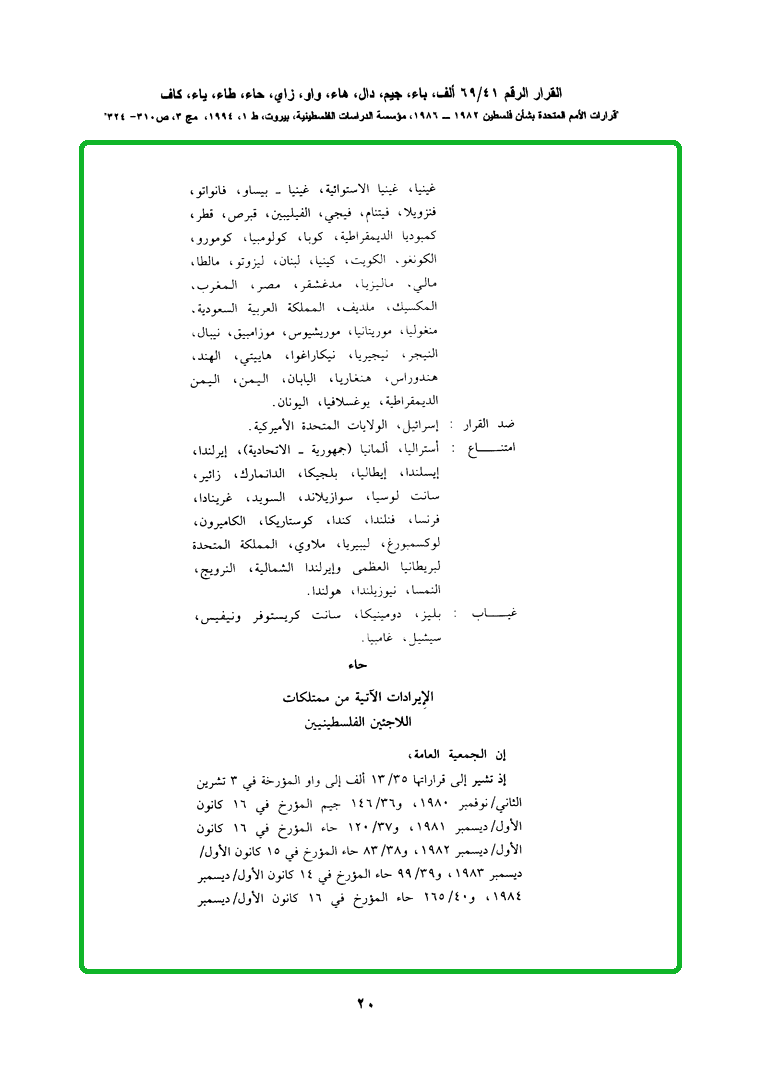 القرار الرقم ٦٩/٤١ ألف، باء، جيم، دال، هاء، واو، زاي، حاء، طاء، ياء، كاف
"قرارات الأمم المتحدة بشأن فلسطين ١٩٨٢ ــ ١٩٨٦، مؤسسة الدراسات الفلسطينية، بيروت، ط ١، ١٩٩٤، مج ٣، ص٣١٠- ٣٢٤"
غينيا، غينيا الاستوائية، غينيا ـ بيساو، فانواتو،
فنزويلا، فيتنام، فيجي، الفيليبين، قبرص، قطر،
كمبوديا الديمقراطية، كوبا، كولومبيا، كومورو،
الكونغو، الكويت، كينيا، لبنان، ليزوتو، مالطا،
مالي، ماليزيا، مدغشقر، مصر، المغرب،
المكسيك، ملديف، المملكة العربية السعودية،
منغوليا، موريتانيا، موريشيوس، موزامبيق، نيبال،
النيجر، نيجيريا، نيكاراغوا، هاييتي، الهند،
هندوراس، هنغاريا، اليابان، اليمن، اليمن
الديمقراطية، يوغسلافيا، اليونان.
ضد القرار : إسرائيل، الولايات المتحدة الأميركية.
امتنـــــاع : أستراليا، ألمانيا (جمهورية ـ الاتحادية)، إيرلندا،
إيسلندا، إيطاليا، بلجيكا، الدانمارك، زائير،
سانت لوسيا، سوازيلاند، السويد، غرينادا،
فرنسا، فنلندا، كندا، كوستاريكا، الكاميرون،
لوكسمبورغ، ليبيريا، ملاوي، المملكة المتحدة
لبريطانيا العظمى وإيرلندا الشمالية، النرويج،
النمسا، نيوزيلندا، هولندا.
غيـــــاب : بليز، دومينيكا، سانت كريستوفر ونيفيس،
سيشيل، غامبيا.
حاء
الإيرادات الآتية من ممتلكات
اللاجئين الفلسطينيين
إن الجمعية العامة،
إذ تشير إلى قراراتها ١٣/٣٥ ألف إلى واو المؤرخة في ٣ تشرين
الثاني/نوفمبر ١٩٨٠، و١٤٦/٣٦ جيم المؤرخ في ١٦ كانون
الأول/ديسمبر ١٩٨١، و١٢٠/٣٧ حاء المؤرخ في ١٦ كانون
الأول/ديسمبر ١٩٨٢، و٨٣/٣٨ حاء المؤرخ في ١٥ كانون الأول/
ديسمبر ١٩٨٣، و٩٩/٣٩ حاء المؤرخ في ١٤ كانون الأول/ديسمبر
١٩٨٤، و٢٦٥/٤٠ حاء المؤرخ في ١٦ كانون الأول/ديسمبر
٢٠